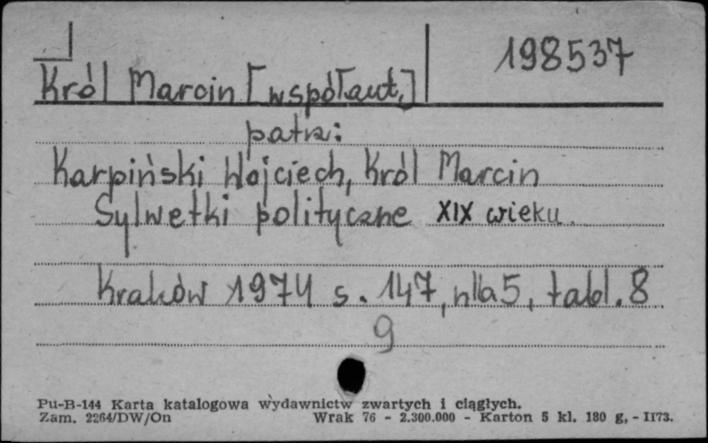 198537
Król Marcin [współaut.]
patrz:
Karpiński Wojciech, Król Marcin
Sylwetki polityczne XIX wieku.
Kraków 1974 s. 147, nlb 5, tabl. 8
9
Pu-B-144 Karta katalogowa wydawnictw zwartych i ciągłych.
Zam. 2264/DW/On Wrak 76 - 2.300.000 - Karton 5 kl. 180 g, - II73.